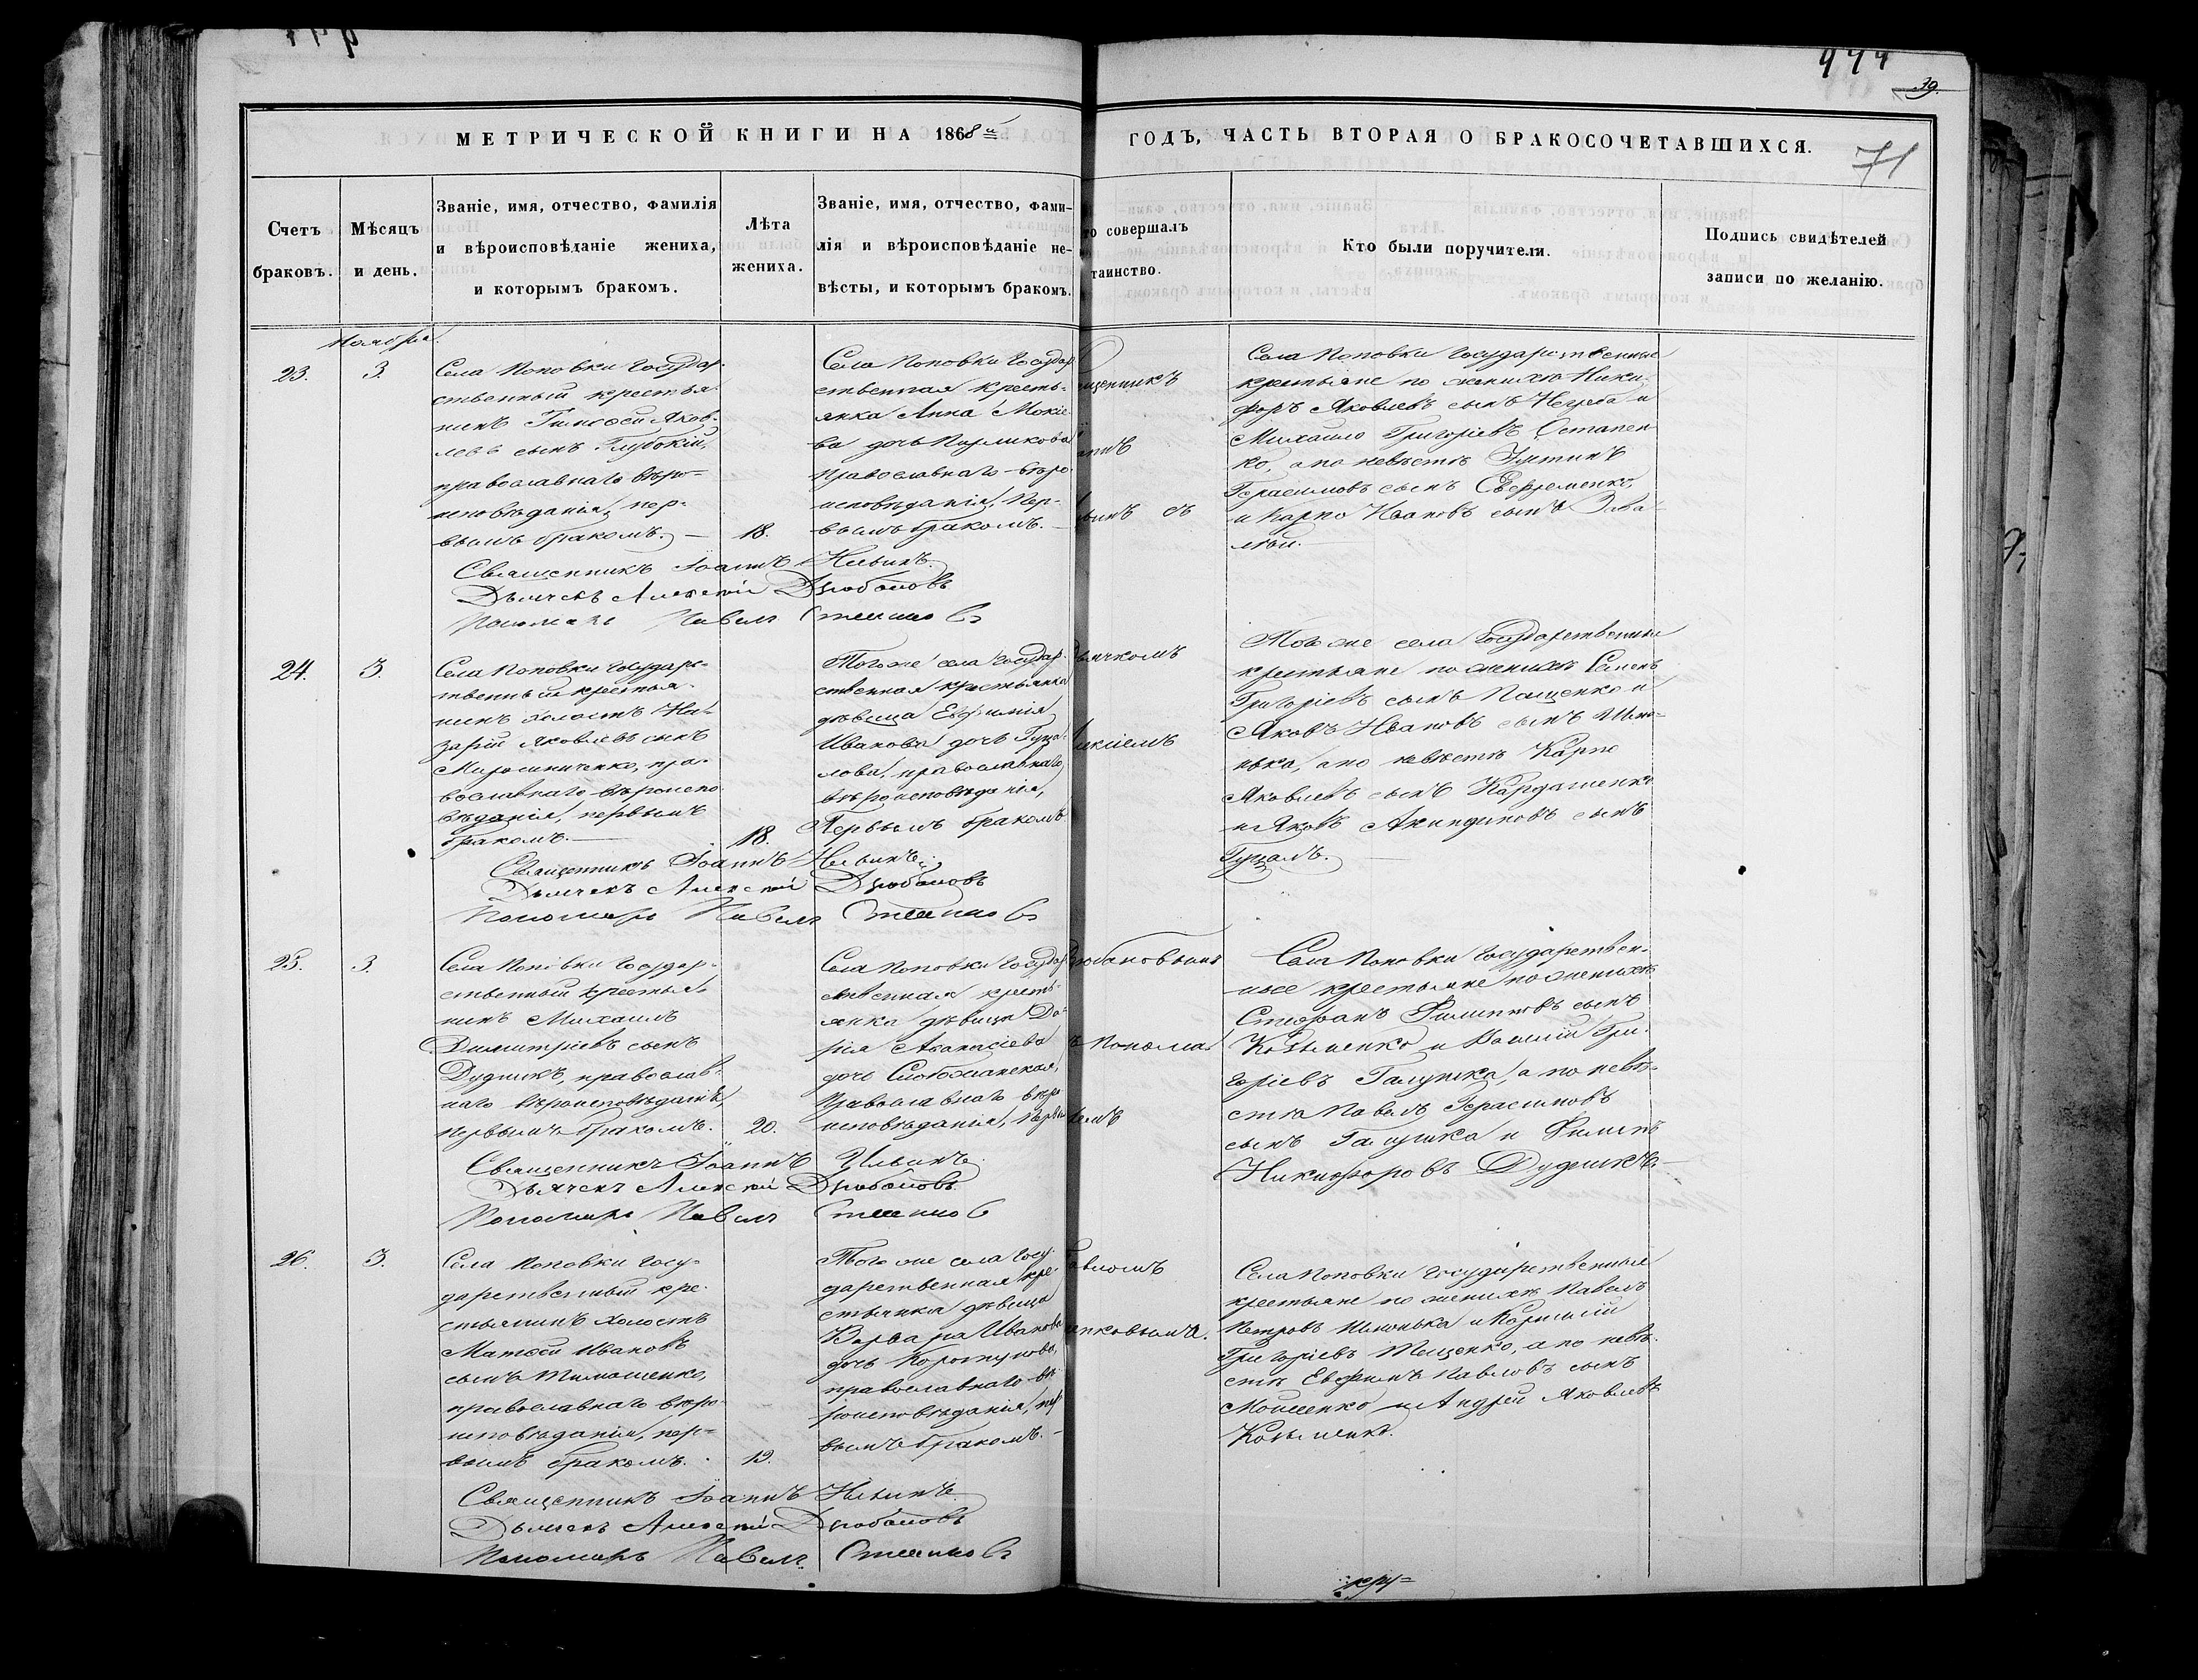 444
39.
71
МЕТРИЧЕСКОЙ КНИГИ НА 1868й
ГОДЪ, ЧАСТЬ ВТОРАЯ О БРАКОСОЧЕТАВШИХСЯ.
Счетъ
браковъ.
Мѣсяцъ
и день.
Званіе, имя, отчество, фамилія
и вѣроисповѣданіе жениха,
и которымъ бракомъ.
Лѣта
жениха.
Званіе, имя, отчество, фами-
лія и вѣроисповѣданіе не-
вѣсты, и которымъ бракомъ.
то совершалъ
таинство.
Кто были поручители.
Подпись свидѣтелей
записи по желанію.
Ноября
23.
3.
Села Поповки Государ-
ственный крестья-
нинъ Тимоѳей Яков-
левъ сынъ Глубокій,
православнаго вѣро-
исповѣданія, пер-
вымъ бракомъ. —
18.
Села Поповки Государ-
ственная кресть-
янка Анна Мокіе-
ва дочь
православнаго вѣро-
исповѣданія, Пер-
вымъ бракомъ. —
Села Поповки Государственные
крестьяне по женихѣ Ники-
форъ Яковлевъ сынъ Негреба и
Михаило Григоріевъ Остапен-
ко, а по невѣстѣ
Герасимовъ сынъ Евфременко,
и Карпо Ивановъ сынъ
Священникъ Іоаннъ Ильинъ.
Дьячекъ Алексій Дзюбановъ
Пономарь Павелъ
24.
3.
Села Поповки Государ-
твенный крестья-
нинъ холостъ На-
зарій Яковлевъ сынъ
Мирошниченко, пра-
вославнаго вѣроиспо-
вѣданія, первымъ
бракомъ. —
18.
Того же села Государ-
ственная крестьянка
дѣвица Евфимія
Иванова дочь Гуца-
лова, православнаго
вѣроисповѣданія,
Первымъ бракомъ
Того же села Государственные
крестьяне по женихѣ
Григоріевъ сынъ Пащенко и
Яковъ Ивановъ сынъ Шмо-
нька, а по невѣстѣ Карпо
Яковлевъ сынъ Кардашенко
и Яковъ Акиндиновъ сынъ
Гуцалъ. —
Священникъ Іоаннъ Ильинъ.
Дьячекъ Алексій Дзюбановъ
Пономарь Павелъ
25.
3.
Села Поповки Государ-
ственный крестья-
нинъ Михаилъ
Димитріевъ сынъ
Дудникъ, православ-
наго вѣроисповѣданія,
первымъ бракомъ.
20.
Села Поповки Государ-
ственная кресть-
янка дѣвица Да-
рія Аѳанасіева
дочь Слобожанская,
Православнаго вѣро-
исповѣданія,
Села Поповки Государствен-
ные крестьяне по женихѣ
Стефанъ Филиповъ сынъ
Козьменко и Василій Гри-
горіевъ Галушка, а по невѣ-
стѣ Павелъ Герасимовъ
сынъ Галушка и Филипъ
Никифоровъ Дудникъ. —
Священникъ Іоаннъ Ильинъ.
Дьячекъ Алексій Дзюбановъ.
Пономарь Павелъ
26.
3.
Села Поповки Госу-
дарственный кре-
стьянинъ холостъ
Матѳей Ивановъ
сынъ Тимошенко,
православнаго вѣро-
исповѣданія, пер-
вымъ бракомъ.
19.
Того же села Госу-
дарственная кре-
стьянка дѣвица
Варвара Иванова
дочь
православнаго вѣ-
роисповѣданія, пер-
вымъ бракомъ. —
Села Поповки Государственные
крестьяне по женихѣ Павелъ
Петровъ Шмонька и Корнилій
Григоріевъ Тещенко, а по невѣ-
стѣ Евфимъ Павловъ сынъ
Мойсеенко и Андрей Яковлевъ
Козьменко.
Священникъ Іоаннъ Ильинъ.
Дьячекъ Алексій Дзюбановъ
Пономарь Павелъ